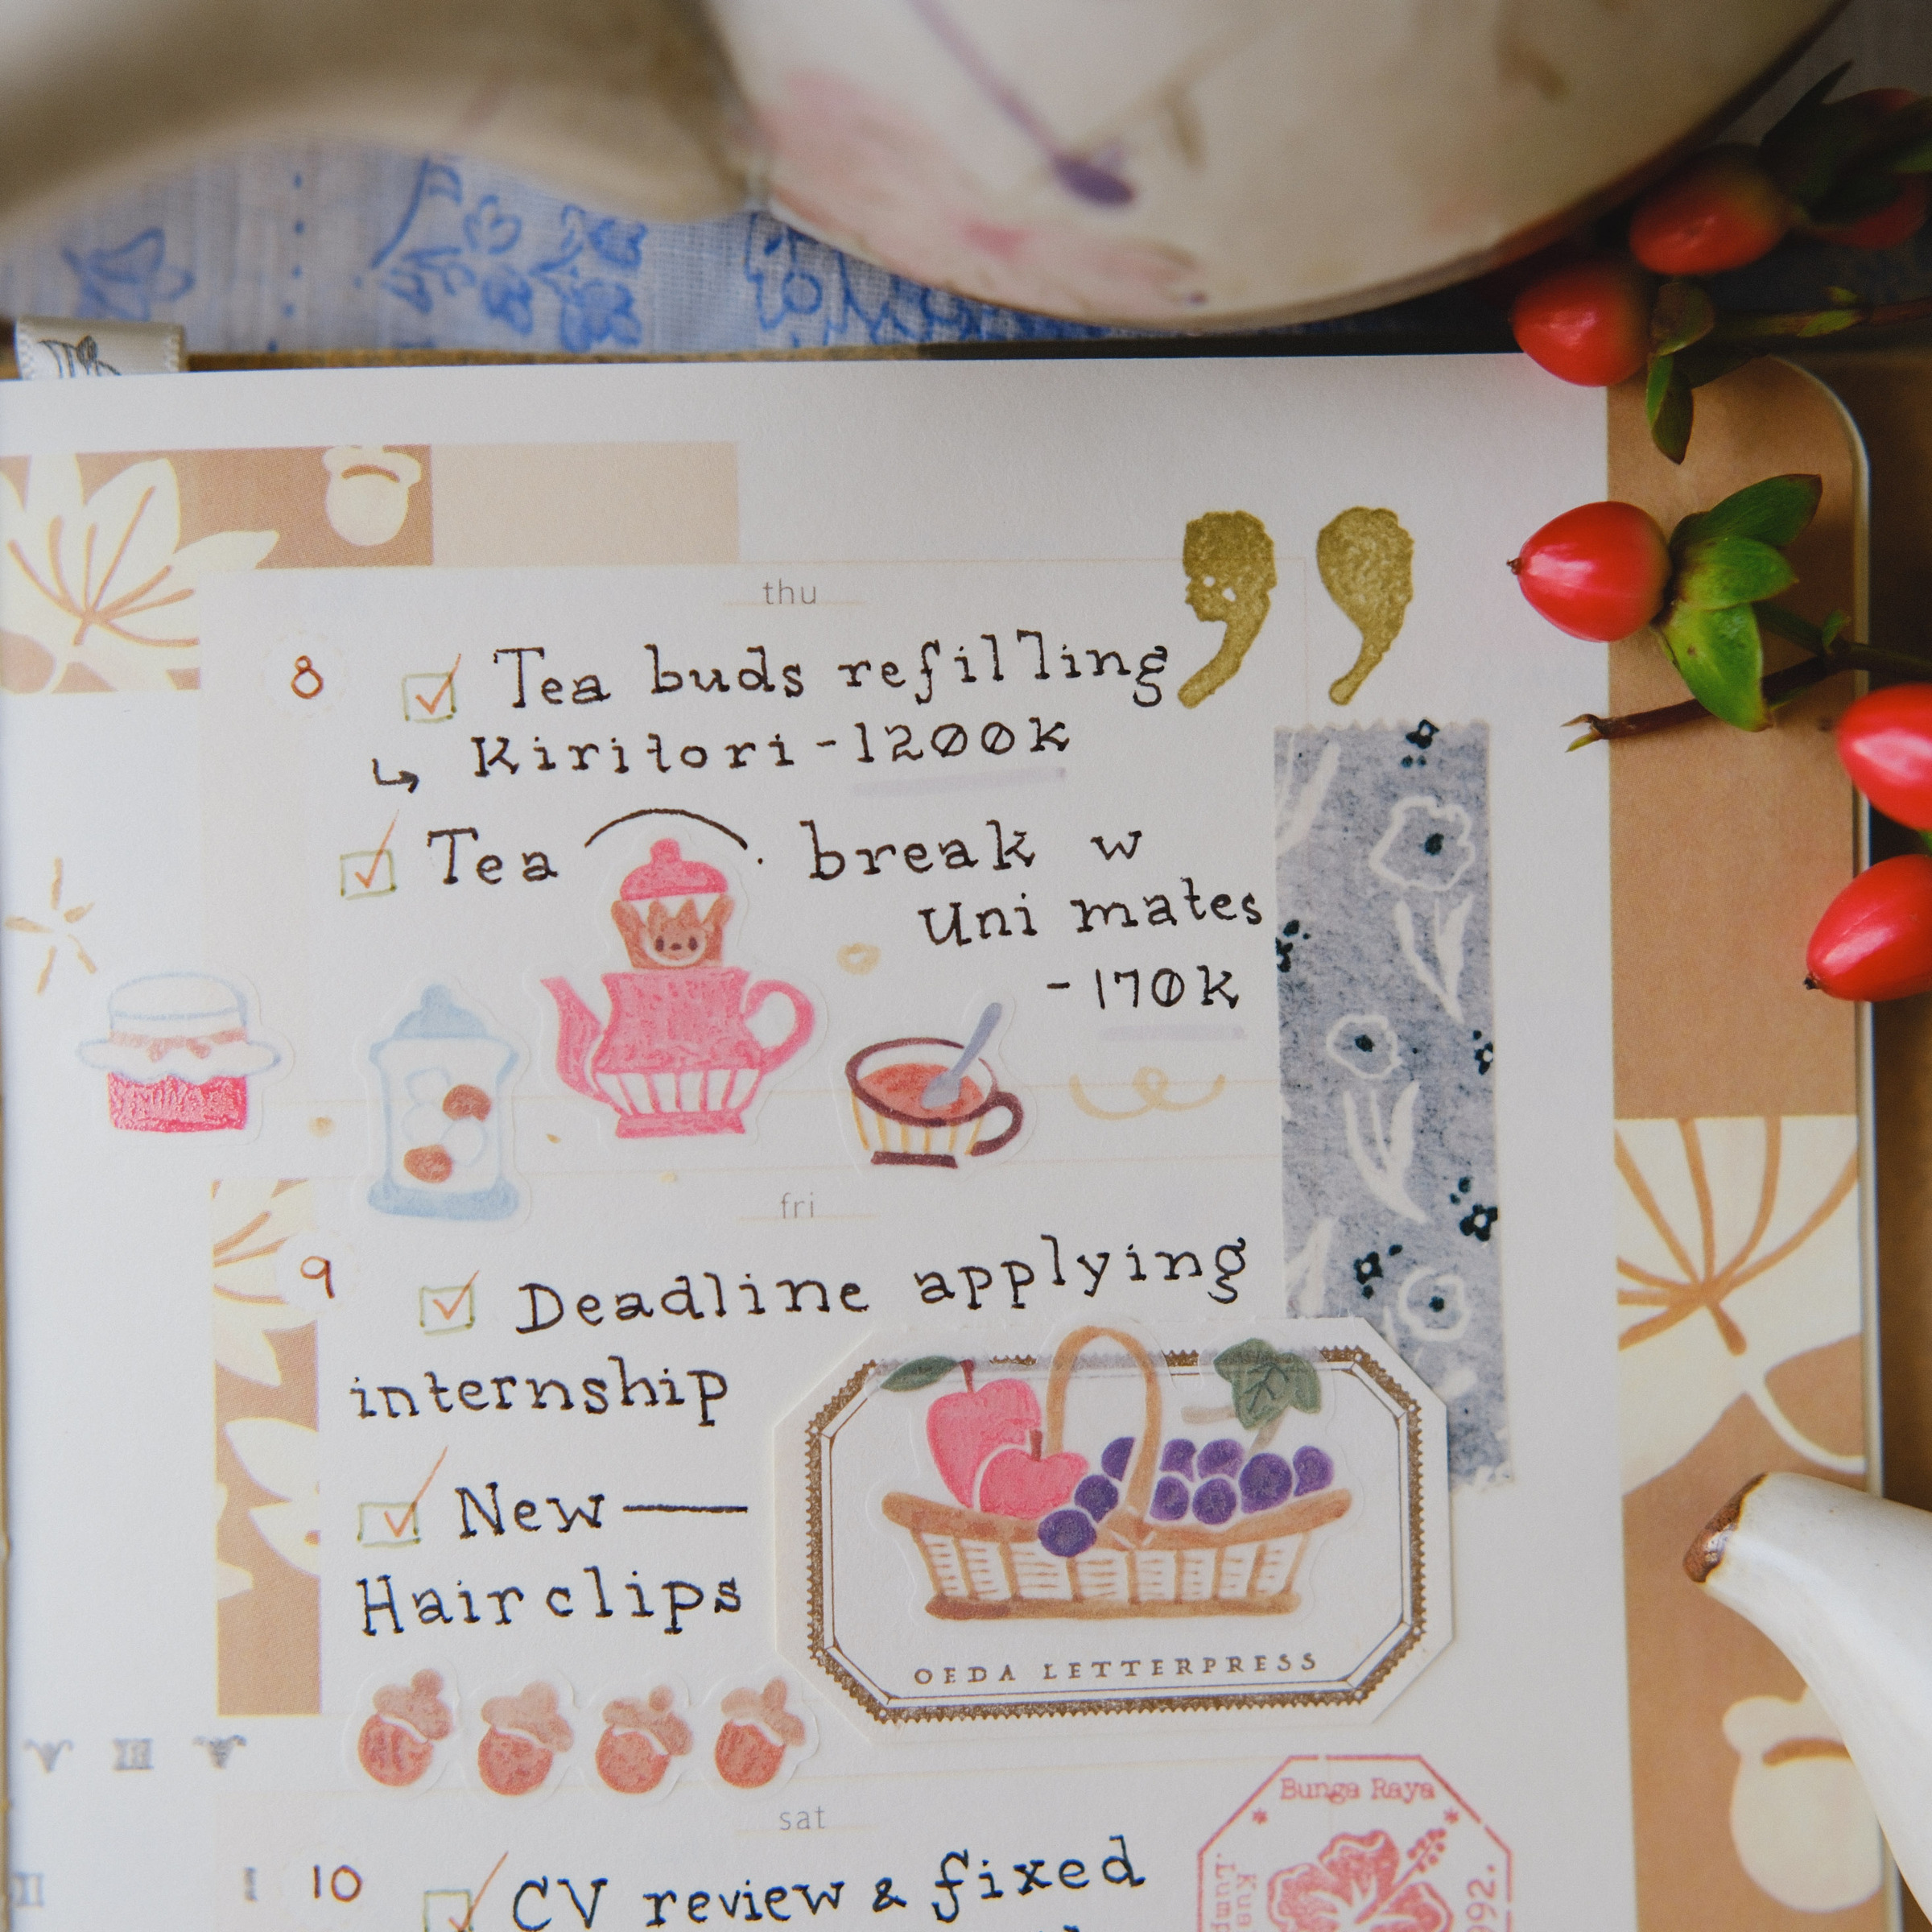 thu
8 Tea buds refilling
↳ Kiritori-1200k
Tea break w
Uni mates
-170k
fri
9 Deadline applying
internship
New —
Hair clips
OEDA LETTERPRESS
sat
10 CV review & fixed
Bunga Raya